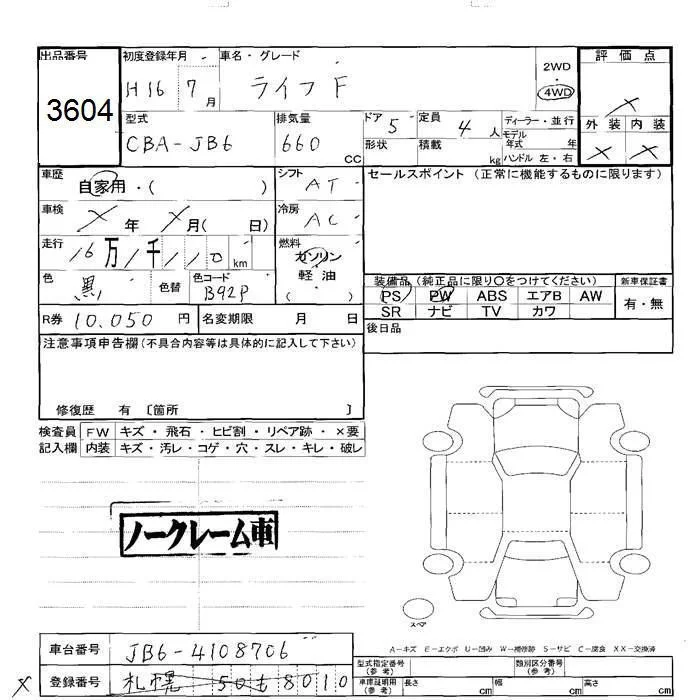 出品番号 初度登録年月 車名・グレード 2WD・4WD 評価点
3604 H16 7月 ライフ F ×
型式 排気量 ドア 定員 ディーラー・並行
CBA-JB6 660 cc 5 4人 モデル年式 年
形状 積載 kg ハンドル 左・右
外装 内装
× ×
車歴 自家用・( ) シフト AT セールスポイント(正常に機能するものに限ります)
車検 × 年 × 月( 日) 冷房 AC
走行 16万1千110km 燃料 ガソリン・軽油( )
色 黒 色替 色コード B92P
装備品(純正品に限り○をつけてください) 新車保証書
PS PW ABS エアB AW 有・無
SR ナビ TV カワ
R券 10,050円 名変期限 月 日 後日品
注意事項申告欄(不具合内容等は具体的に記入して下さい)
修復歴 有 [箇所 ]
検査員 FW キズ・飛石・ヒビ割・リペア跡・×要
記入欄 内装 キズ・汚レ・コゲ・穴・スレ・キレ・破レ
ノークレーム車
スペア
A-キズ E-エクボ U-凹み W-補修跡 S-サビ C-腐食 XX-交換済
車台番号 JB6-4108706
型式指定番号(参考) 類別区分番号(参考)
× 登録番号 札幌 50 も 8010
車庫証明用(参考) 長さ cm 幅 cm 高さ cm